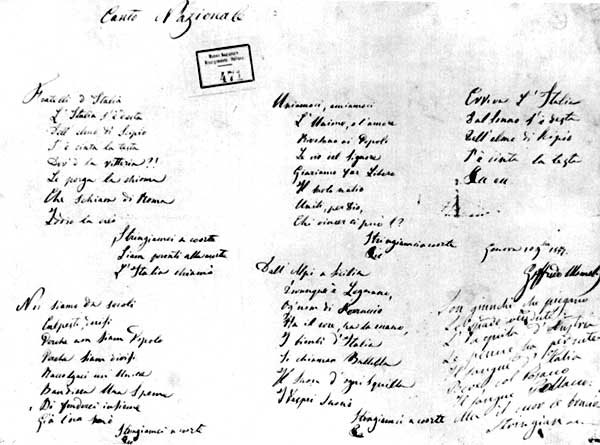 Canto Nazionale
Museo Nazionale
Risorgimento Italiano
471
Fratelli d'Italia
L'Italia s'è desta
Dell'elmo di Scipio
S'è cinta la testa
Dov'è la vittoria?!
Le porga la chioma
Che schiava di Roma
Iddio la creò
Stringiamci a coorte
Siam pronti alla morte
L'Italia chiamò
Noi siamo da secoli
Calpesti, derisi
Perché non siam Popolo
Perché siam divisi
Raccolgaci un'Unica
Bandiera Una Speme
Di fonderci insieme
Già l'ora suonò
Stringiamci a coorte
Uniamoci, amiamoci
L'Unione, e l'amore
Rivelano ai Popoli
Le vie del Signore
Giuriamo far Libero
Il suolo natio
Uniti, per Dio,
Chi vincer ci può!?
Stringiamci a coorte
Dall'Alpi a Sicilia
Dovunque è Legnano,
Ogn'uom di Ferruccio
Ha il core, ha la mano,
I bimbi d'Italia
Si chiaman Balilla
Il Suon d'ogni Squilla
I Vespri Suonò
Stringiamci a coorte
Evviva l'Italia
Dal sonno s'è desta
Dell'elmo di Scipio
S'è cinta la testa
Genova
Goffredo Mameli
Son giunchi che piegano
Le spade vendute
L'Aquila d'Austria
Le penne ha perdute
Il sangue d'Italia
Bevé, col Cosacco
Il sangue Polacco:
Ma il cuor le bruciò
Stringiamci